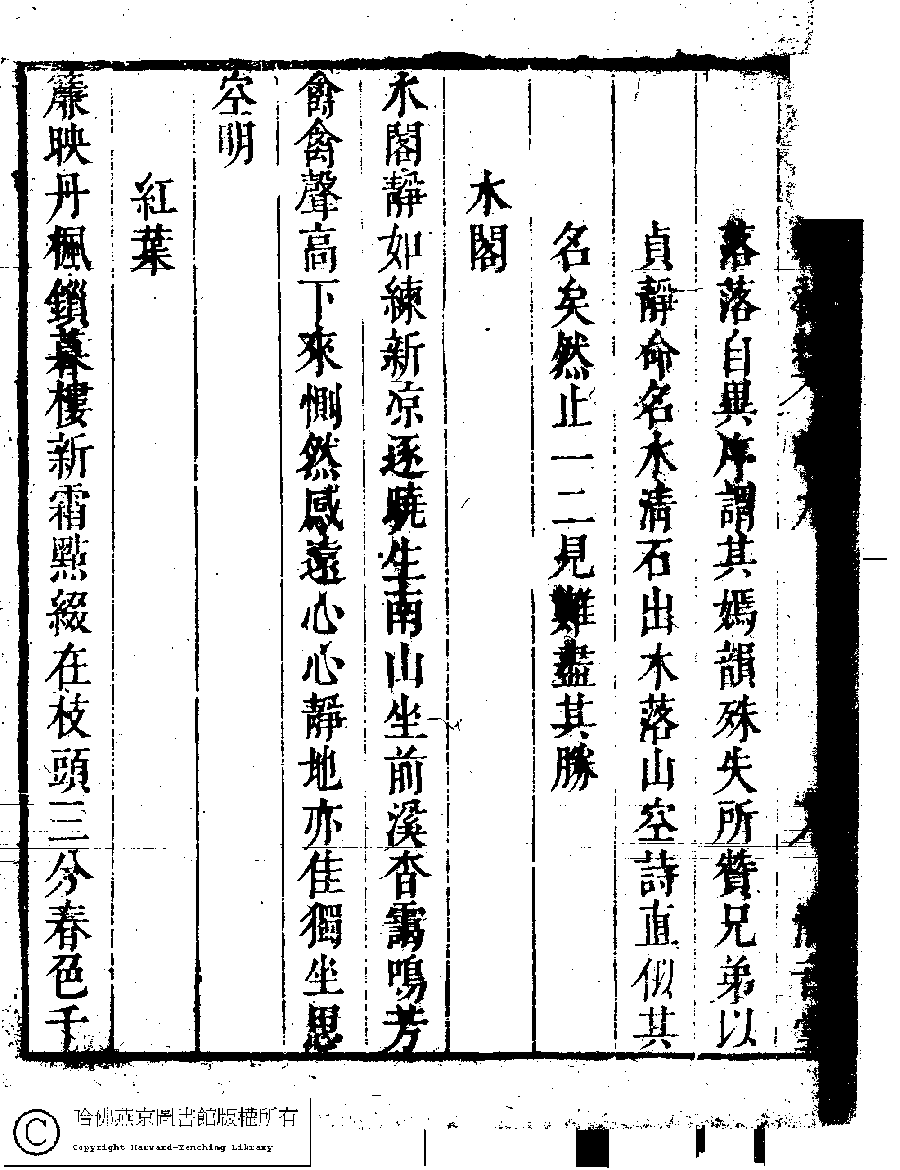 落落自異序謂其嫣韻殊失所贊兄弟以
貞靜命名水清石出木落山空詩直似其
名矣然止一二見難盡其勝
水閣
水閣靜如練新凉逐曉生南山坐前溪杳靄鳴芳
禽禽聲高下來惻然感遠心心靜地亦佳獨坐思
空明
紅葉
簾映丹楓鎖暮樓新霜點綴在枝頭三分春色千
哈佛燕京圖書館版權所有
Copyright Harvard-Yenching Library